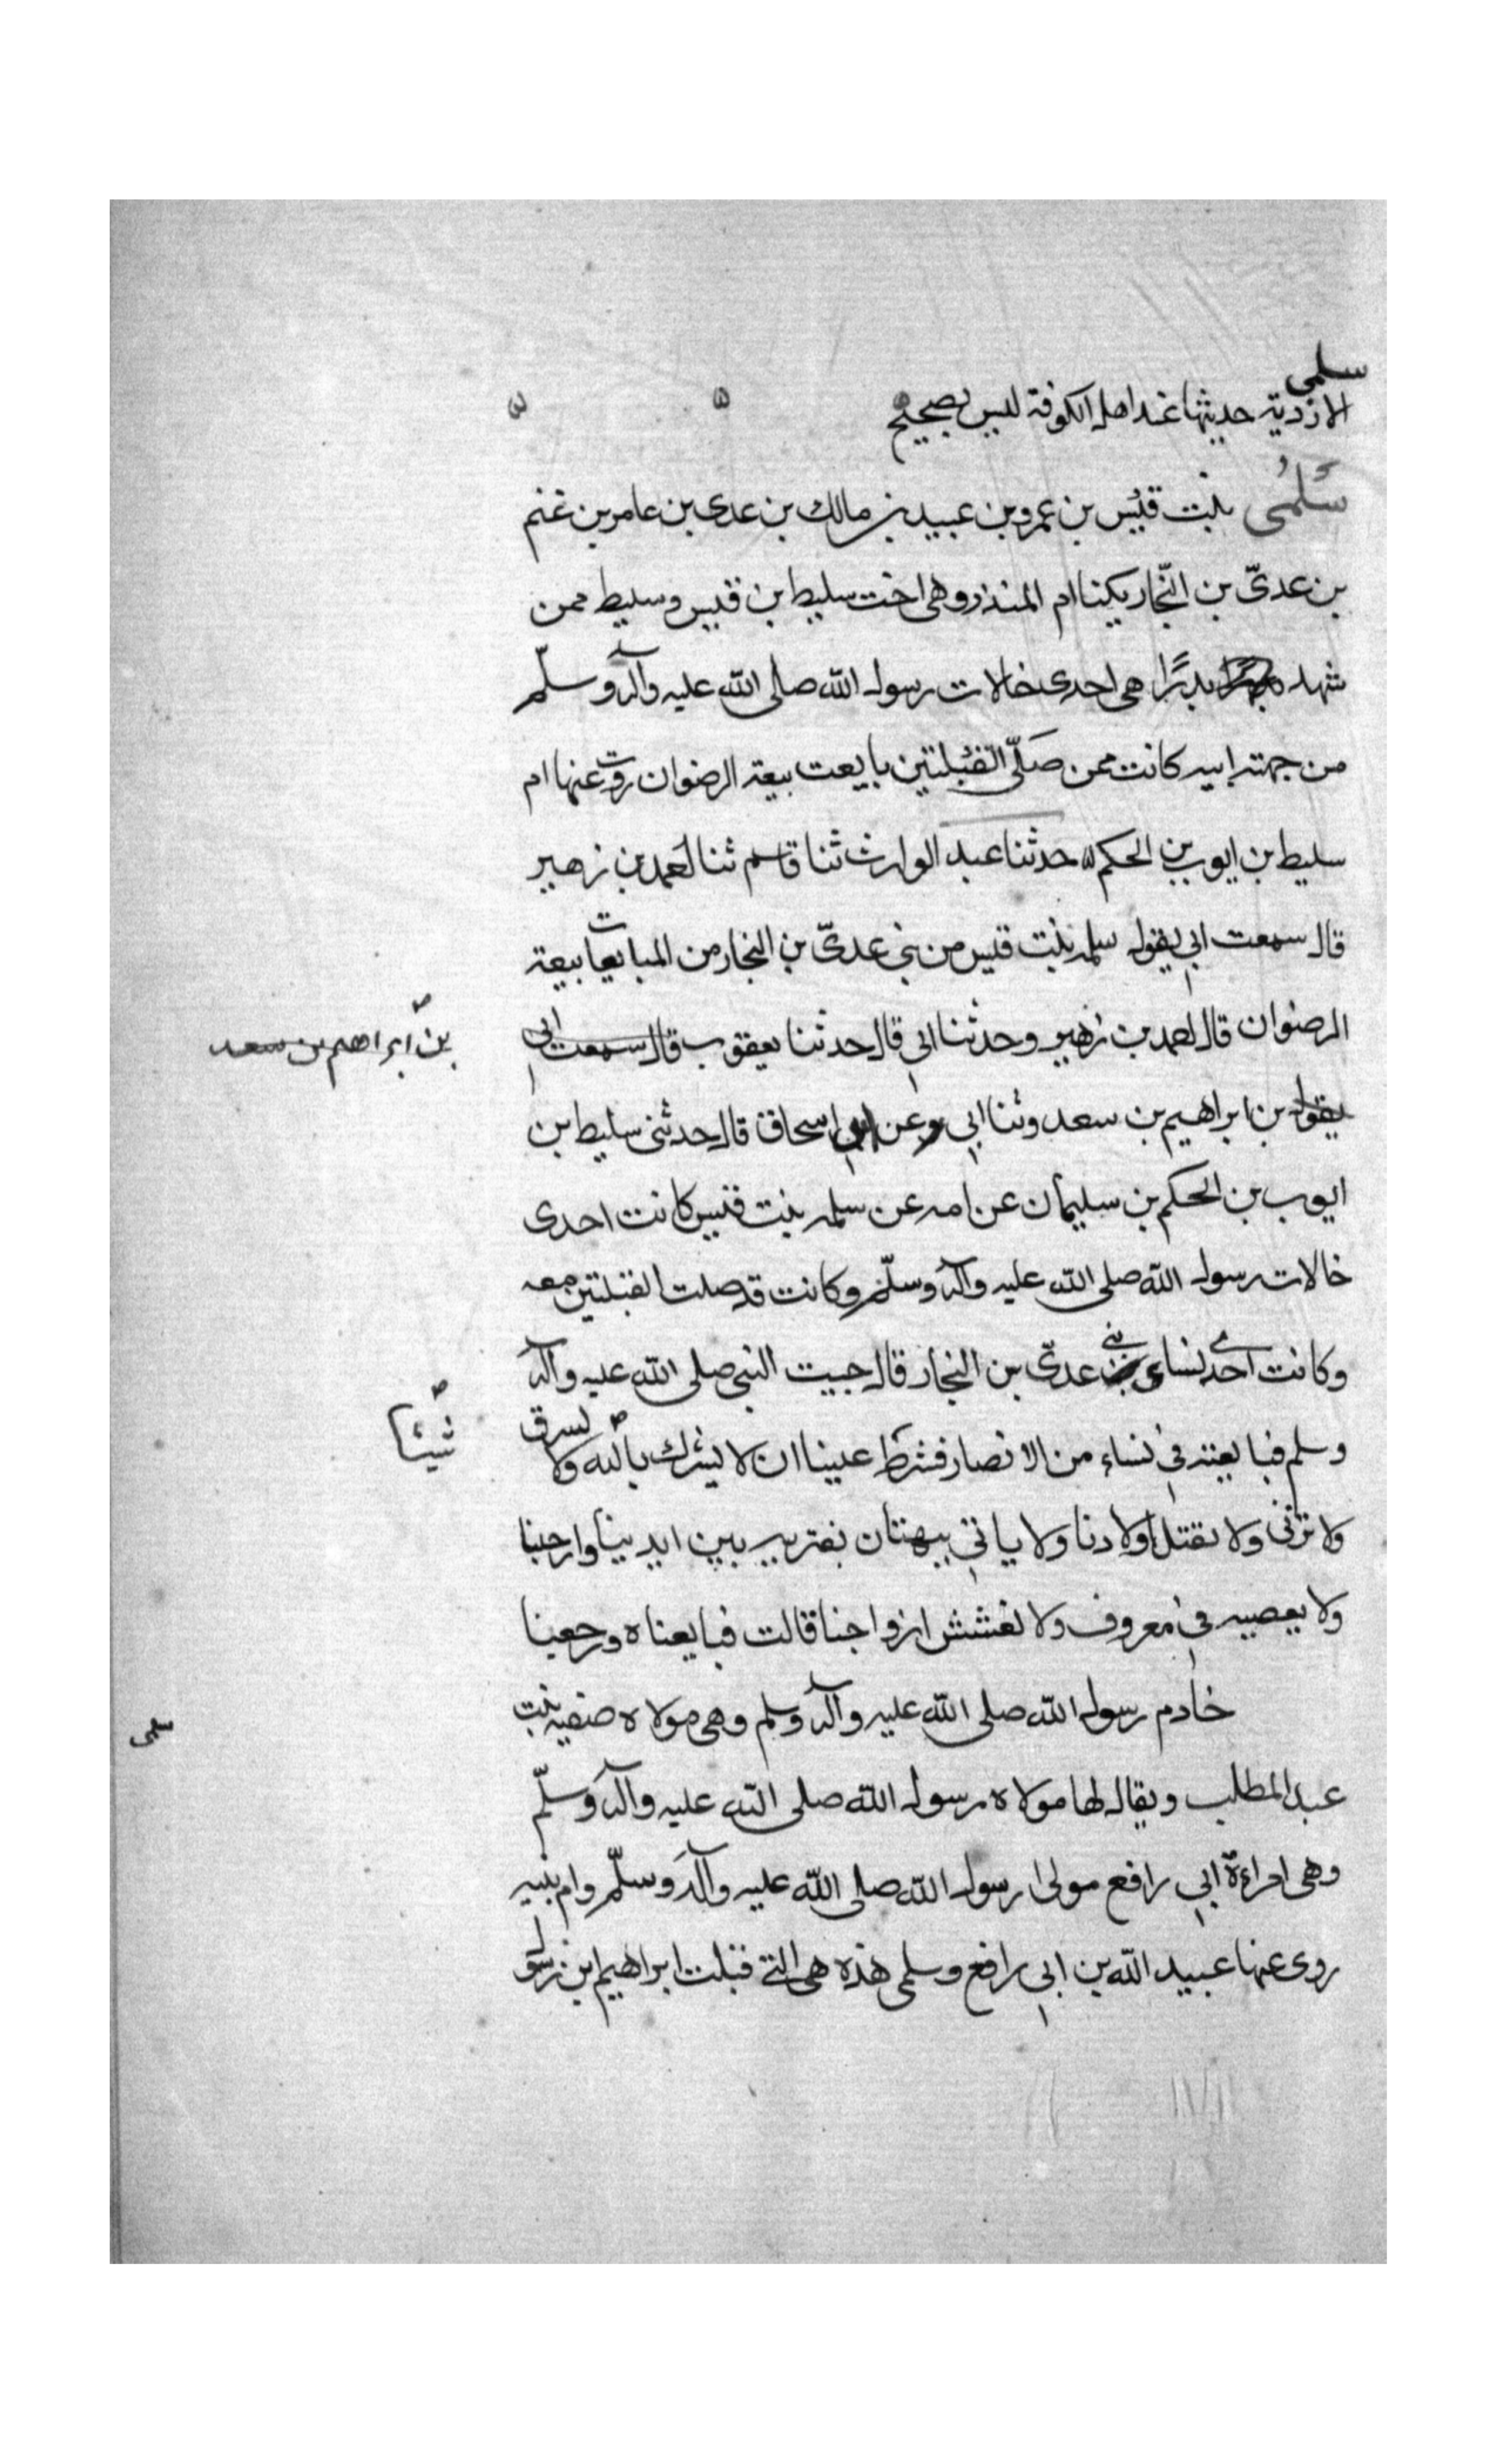 سلمى
الازدية حديثها عند اهل الكوفة ليس بصحيح ه ه
سَلمُى بنت قيس بن عمرو بن عبيد بن مالك بن عدى بن عامر بن غنم
بن عدىّ بن النّجار يكنا ام المنذر وهى اخت سليط بن قيس وسليط ممن
شهد بدرًا هى احدى خالات رسول الله صلى الله عليه وآله وسلّم
من جهته ابيه كانت ممن صَلّى القبلتين بايعت بيعة الرضوان روت عنها ام
سليط بن ايوب بن الحكم ه حدثنا عبد الوارث ثنا قاسم ثنا احمد بن زهير
قال سمعت ابي يقول سلمه بنت قيس من بني عدىّ بن النجار من المبايعات بيعة
الرضوان قال احمد بن زهير وحدثنا ابي قال حدثنا يعقوب قال سمعت ابي
بن ابراهيم بن سعد
يقول بن ابراهيم بن سعد وثنا ابي وعن ابي اسحاق قال حدثنى سليط بن
ايوب بن الحكم بن سليمان عن امه عن سلمه بنت قيس كانت احدى
خالات رسول الله صلى الله عليه وآله وسلّم وكانت قد صلت القبلتين معه
وكانت احدى نساء بني عدىّ بن النجار قال جيت النبى صلى الله عليه وآله
وسلم فبايعته في نساء من الانصار فشرط علينا ان لا يشرك بالله ولا يسرق
شيئا
ولا تزنى ولا نقتل اولادنا ولا ياتي ببهتان نفتريه بين ايدينا وارجلنا
ولا يعصيه في معروف ولا نغشش ازواجنا قالت فبايعناه ورجعنا
خادم رسول الله صلى الله عليه وآله وسلم وهى مولاه صفيه بنت
سلمى
عبد المطلب ويقال لها مولاه رسول الله صلى الله عليه وآله وسلّم
وهى امراءة ابي رافع مولى رسول الله صلى الله عليه وآله وسلّم وام بنيه
روى عنها عبيد الله بن ابي رافع وسلمى هذه هى التي قبلت ابراهيم ابن رسول